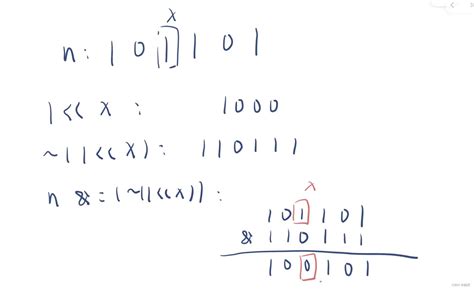 x
n: 1 0 1 1 0 1
1<< x : 1000
~(1<<x): 110111
n &=(~(1<<x)):
x
1 0 1 1 0 1
& 1 1 0 1 1 1
1 0 0 1 0 1